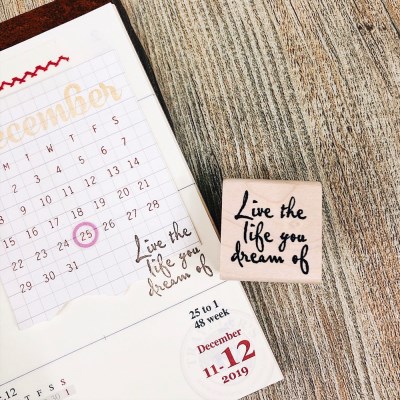 December
M T W T F S
1 2 3 4 5 6 7
8 9 10 11 12 13 14
15 16 17 18 19 20 21
22 23 24 25 26 27 28
29 30 31
Live the
life you
dream of
Live the
life you
dream of
25 to 1
48 week
December
11-12
2019
.12
T F S S